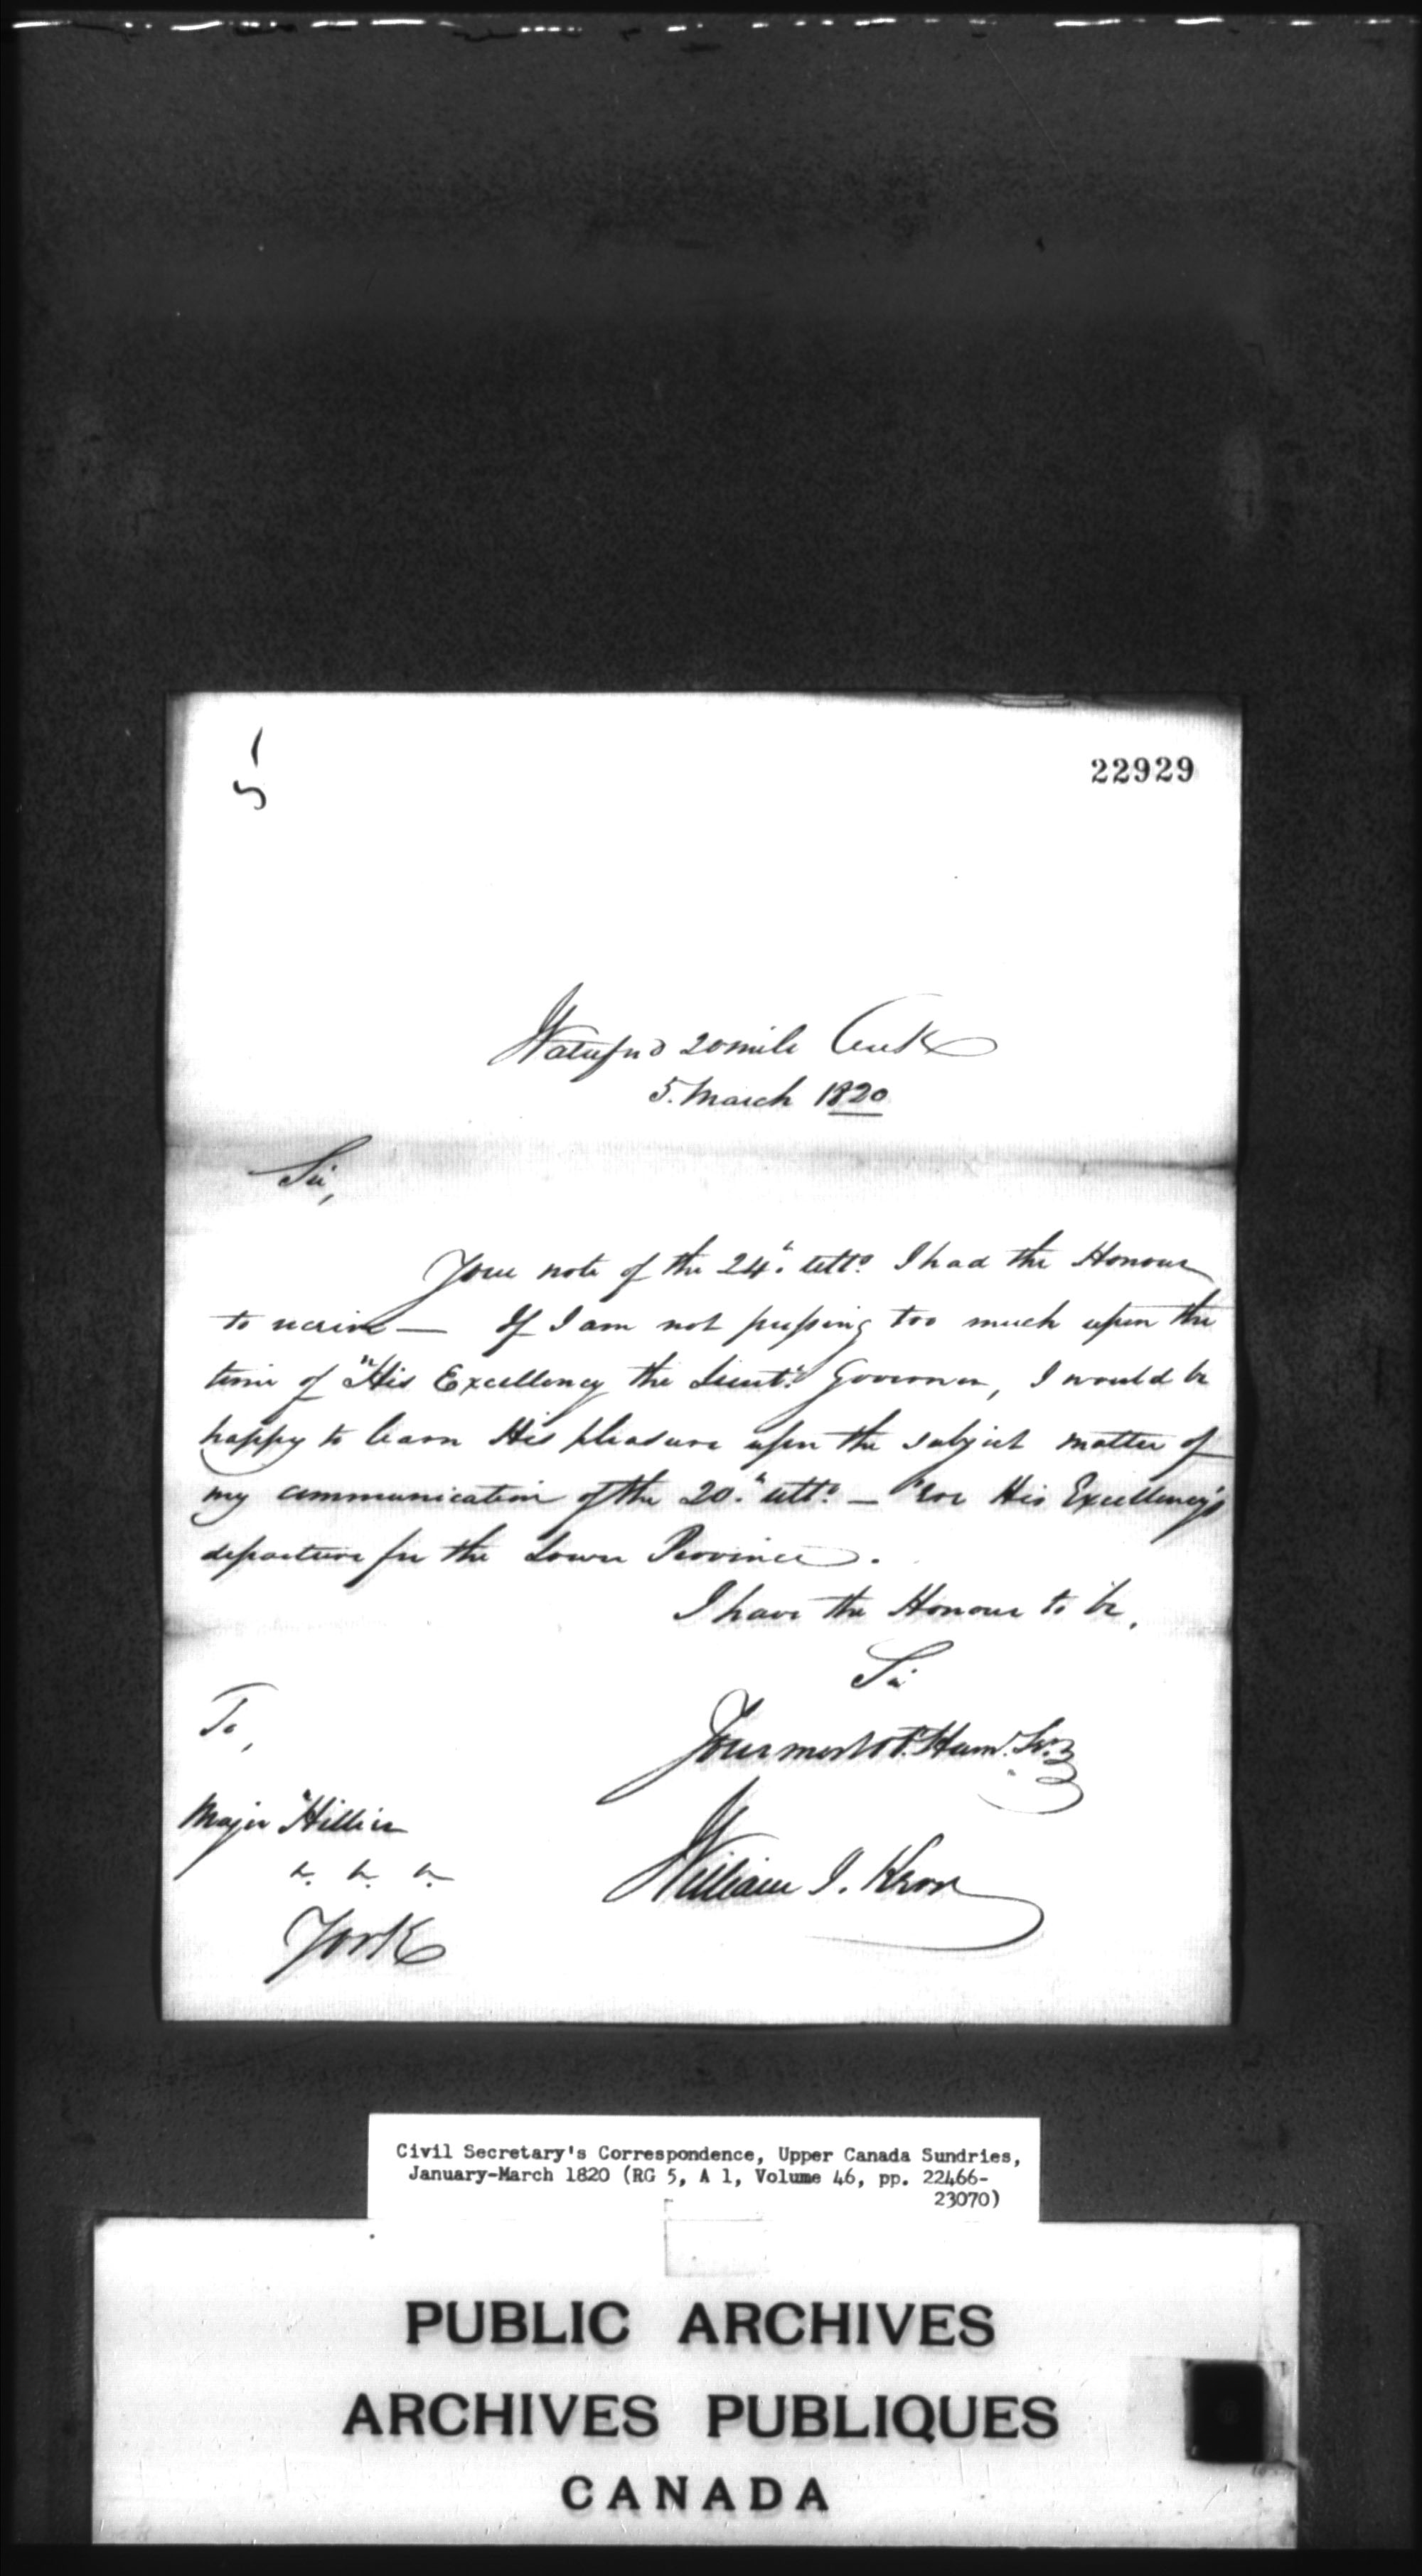 5
22929
Waterford 20 mile Creek
5. March 1820
Sir,
Your note of the 24th. ulto. I had the Honour
to receive — If I am not pressing too much upon the
time of His Excellency the Lieut. Governor, I would be
happy to learn His pleasure upon the subject matter of
my communication of the 20th ulto. — 'ere His Excellency's
departure for the Lower Province.
I have the Honour to be,
Sir
Your most Ot. Hum. Svt.
To,
Major Hillier
&. &. &.
York
William J. Kerr
Civil Secretary's Correspondence, Upper Canada Sundries,
January-March 1820 (RG 5, A 1, Volume 46, pp. 22466-
23070)
PUBLIC ARCHIVES
ARCHIVES PUBLIQUES
CANADA